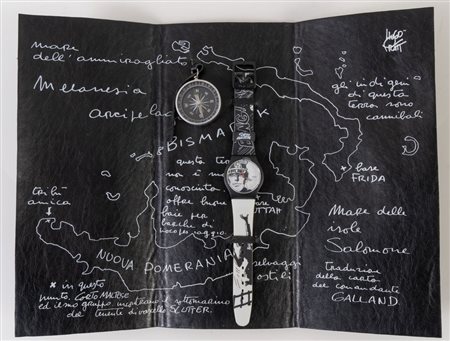 HUGO
PRATT
mare
dell'ammiragliato
Melanesia
arcipelago
BISMARCK
gli indigeni
di questa
terra sono
cannibali
questa terra
non è mai
conosciuta
offre buone
baie per
barche di
base
FRIDA
tribù
amica
Mare delle
isole
Salomone
NUOVA POMERANIA
selvaggi
ostili
traduzione
della carta
del comandante
GALLAND
* in questo
punto, CORTO MALTESE
ed il suo gruppo incontrano il sottomarino
del tenente di vascello SLUTTER.